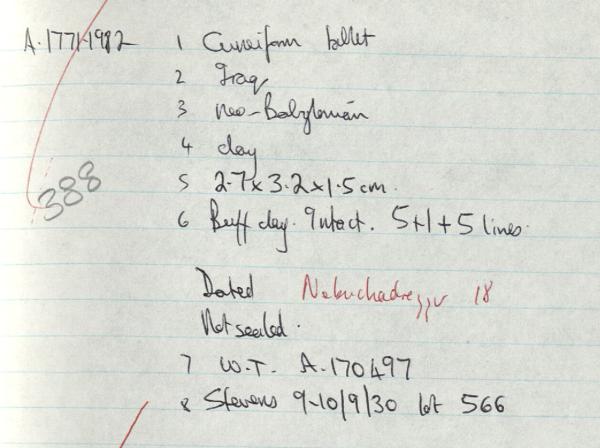 A.177/1982 1 Cuneiform tablet
2 Iraq
3 neo-Babylonian
4 clay
388
5 2.7 x 3.2 x 1.5 cm.
6 Buff clay. Intact. 5+1+5 lines.
Dated Nebuchadrezzar 18
Not sealed.
7 W.T. A.170497
8 Stevens 9-10/9/30 lot 566